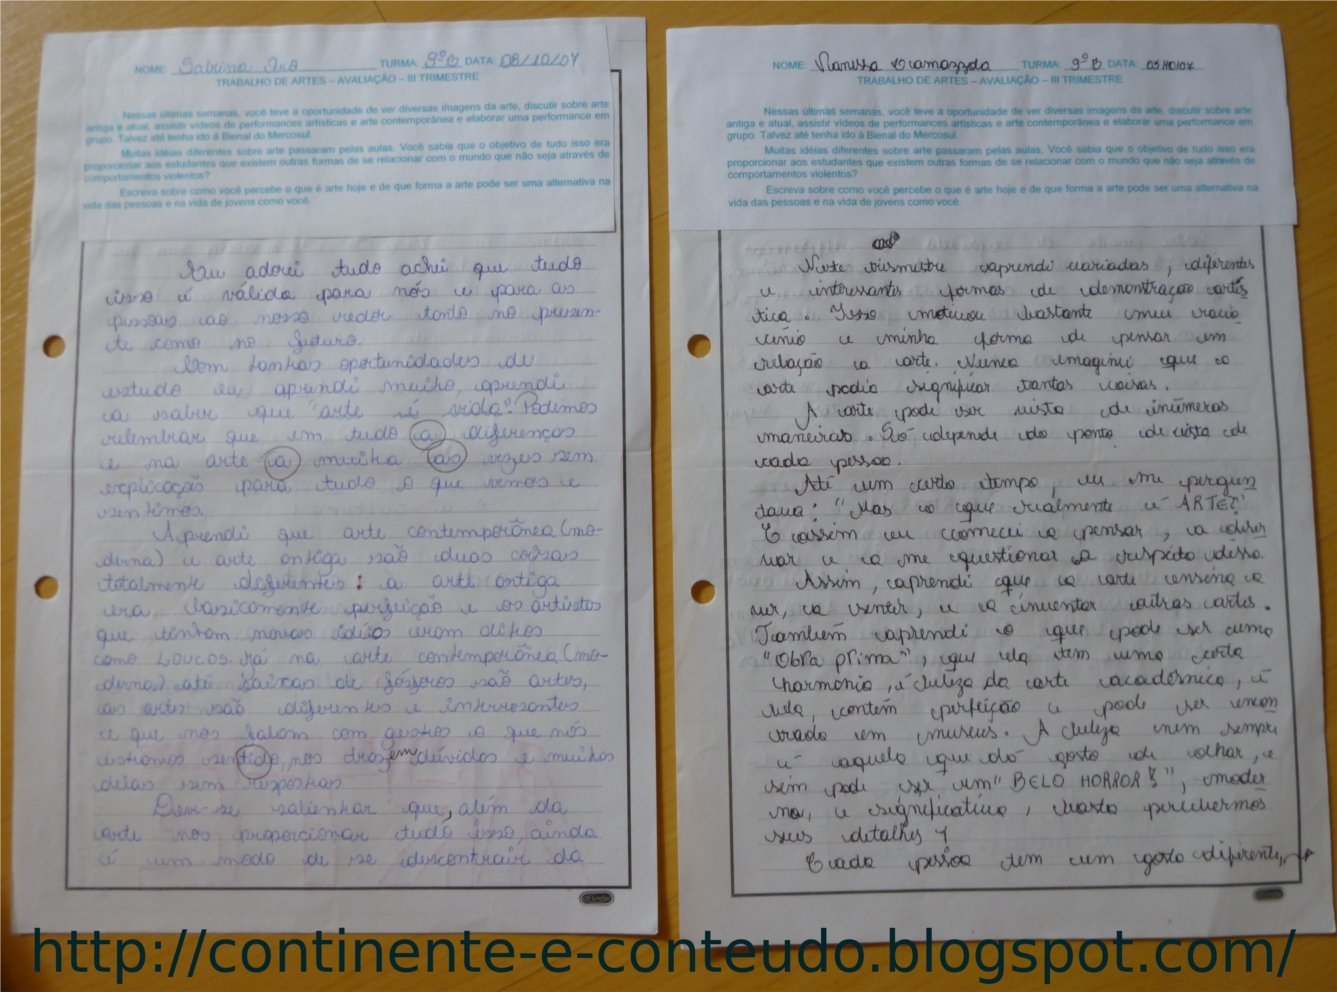 NOME: Sabrina TURMA: 9º B DATA: 08/10/07
TRABALHO DE ARTES – AVALIAÇÃO – III TRIMESTRE
Nessas últimas semanas, você teve a oportunidade de ver diversas imagens da arte, discutir sobre arte
antiga e atual, assistir vídeos de performances artísticas e arte contemporânea e elaborar uma performance em
grupo. Talvez até tenha ido à Bienal do Mercosul.
Muitas idéias diferentes sobre arte passaram pelas aulas. Você sabia que o objetivo de tudo isso era
proporcionar aos estudantes que existem outras formas de se relacionar com o mundo que não seja através de
comportamentos violentos?
Escreva sobre como você percebe o que é arte hoje e de que forma a arte pode ser uma alternativa na
vida das pessoas e na vida de jovens como você.
Eu adorei tudo achei que tudo
isso é válida para nós e para as
pessoas ao nosso redor tanto no presen-
te como no futuro.
Com tantas oportunidades de
estudo eu aprendi muito, aprendi
a saber que "arte é vida". Podemos
relembrar que em tudo a diferenças
e na arte a muita as vezes sem
explicação para tudo o que vemos e
sentimos.
Aprendi que arte contemporânea (mo-
derna) e arte antiga são duas coisas
totalmente diferentes: a arte antiga
era, basicamente perfeição e os artistas
que tinham novas idéias eram ditos
como LOUCOS. Já na arte contemporânea (mo-
derna) até caixas de fósforos são artes,
as artes são diferentes e interessantes
e que nos falam com gestos o que nós
estamos sentido, nos trazem dúvidas e muitas
delas sem respostas.
Deve-se salientar que, além da
arte nos proporcionar tudo isso, ainda
é um modo de se descontrair da
NOME: TURMA: 9º B DATA: 05/10/07
TRABALHO DE ARTES – AVALIAÇÃO – III TRIMESTRE
Nessas últimas semanas, você teve a oportunidade de ver diversas imagens da arte, discutir sobre arte
antiga e atual, assistir vídeos de performances artísticas e arte contemporânea e elaborar uma performance em
grupo. Talvez até tenha ido à Bienal do Mercosul.
Muitas idéias diferentes sobre arte passaram pelas aulas. Você sabia que o objetivo de tudo isso era
proporcionar aos estudantes que existem outras formas de se relacionar com o mundo que não seja através de
comportamentos violentos?
Escreva sobre como você percebe o que é arte hoje e de que forma a arte pode ser uma alternativa na
vida das pessoas e na vida de jovens como você.
Neste trismestre aprendi variadas, diferentes
e interessantes formas de demonstração artís
tica. Isso mudou bastante meu racio
cínio e minha forma de pensar em
relação a arte. Nunca imaginei que a
arte podia significar tantas coisas.
A arte pode ser vista de inúmeras
maneiras. Só depende do ponto de vista de
cada pessoa.
Até um certo tempo, eu me pergun
tava: "Mas o que realmente é ARTE?"
E assim eu comecei a pensar, a obser
var e a me questionar a respeito disso.
Assim, aprendi que a arte ensina a
ver, a sentir, e a inventar outras artes.
Também aprendi o que pode ser uma
"Obra prima", que ela tem uma certa
harmonia, é beleza da arte acadêmica, é
bela, contém perfeição e pode ser encon
trada em museus. A beleza nem sempre
é aquela que dá gosto de olhar, e
sim pode ser um "BELO HORROR!", moder
na, e significativa, basta percebermos
seus detalhes!
Cada pessoa tem um gosto diferente,
http://continente-e-conteudo.blogspot.com/